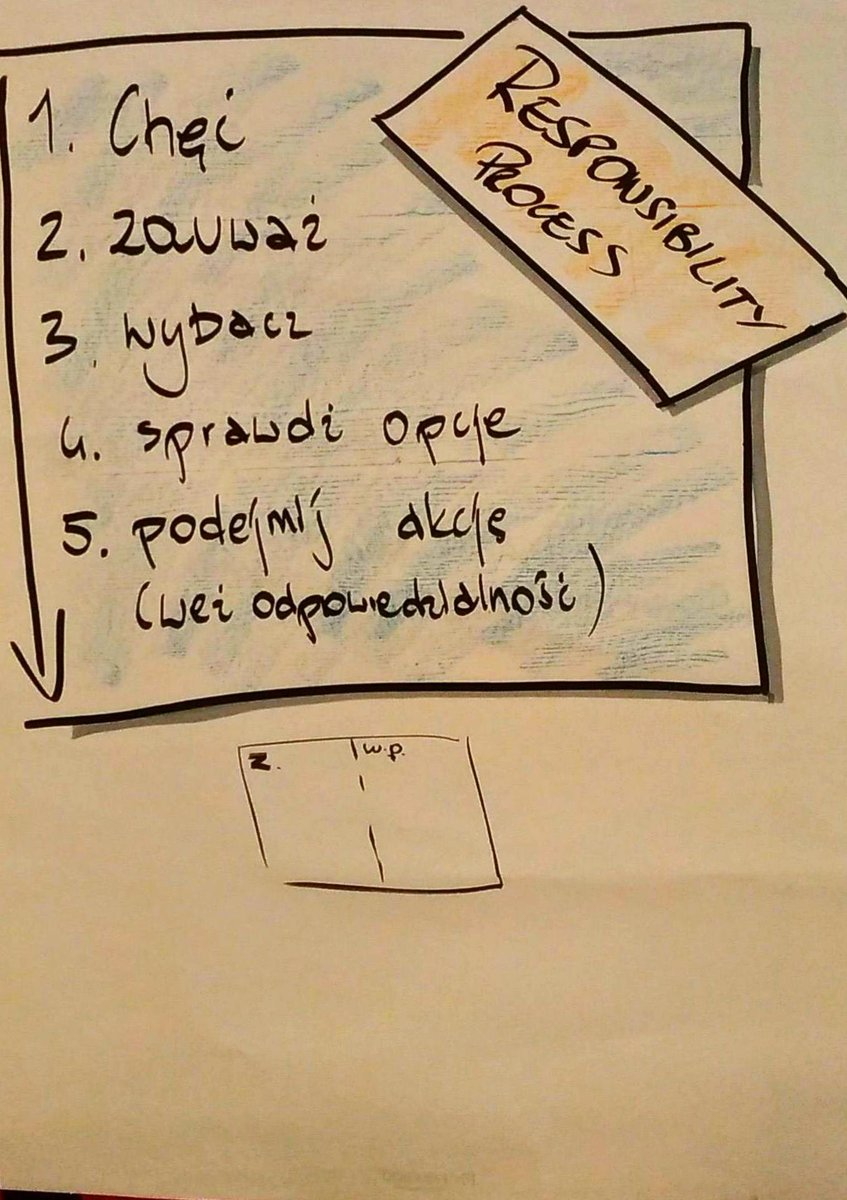 RESPONSIBILITY
PROCESS
1. Chęć
2. zauważ
3. wybacz
4. sprawdź opcje
5. podejmij akcję
(weź odpowiedzialność)
z. w.p.